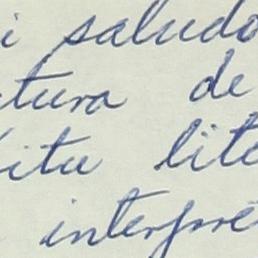 i saludo
tura de
itu lite
interpre